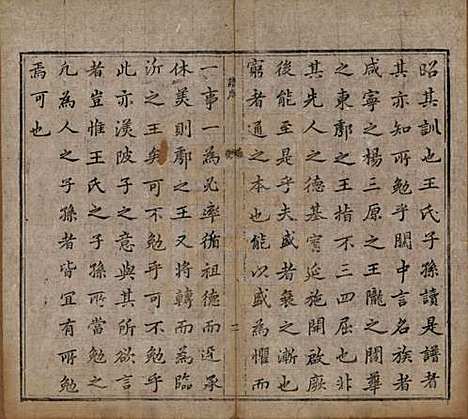 昭其訓也王氏子孫讀是譜者
其亦知所勉乎關中言名族者
咸寧之楊三原之王隴之閻華
之東鄠之王指不三四屈也非
其先人之德基實延施開啟厥
後能至是乎夫盛者衰之漸也
窮者通之本也能以盛為懼而
一事一為必率循祖德而近承
休美則鄠之王又將轉而為臨
沂之王矣可不勉乎可不勉乎
此亦渼陂子之意與其所欲言
者豈惟王氏之子孫所當勉之
凡為人之子孫者皆宜有所勉
焉可也